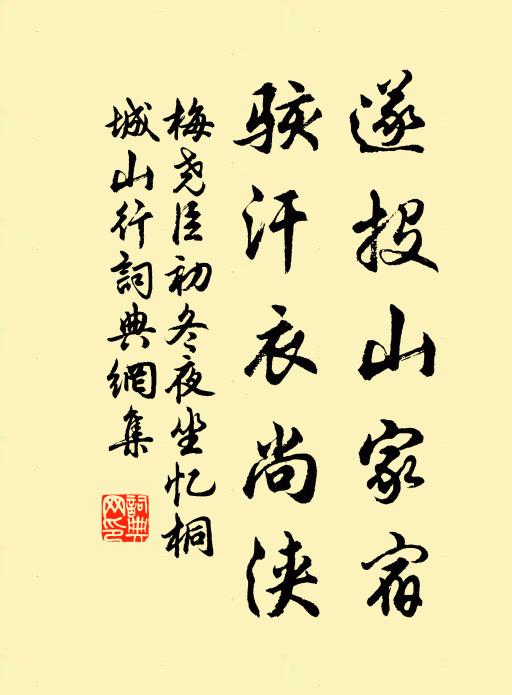 遂投山家宿
骇汗衣尚浃
梅尧臣初冬夜坐忆桐
城山行詞典網集
詞典
网印